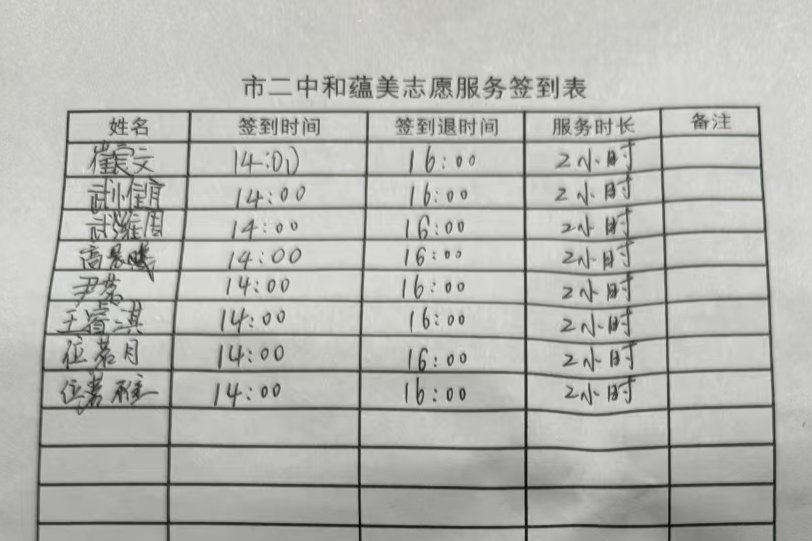 市二中和蕴美志愿服务签到表
姓名 签到时间 签到退时间 服务时长 备注
崔 文 14:00 16:00 2小时
武 14:00 16:00 2小时
武 周 14:00 16:00 2小时
高 14:00 16:00 2小时
尹茗 14:00 16:00 2小时
王睿淇 14:00 16:00 2小时
位茗月 14:00 16:00 2小时
位茗雅 14:00 16:00 2小时